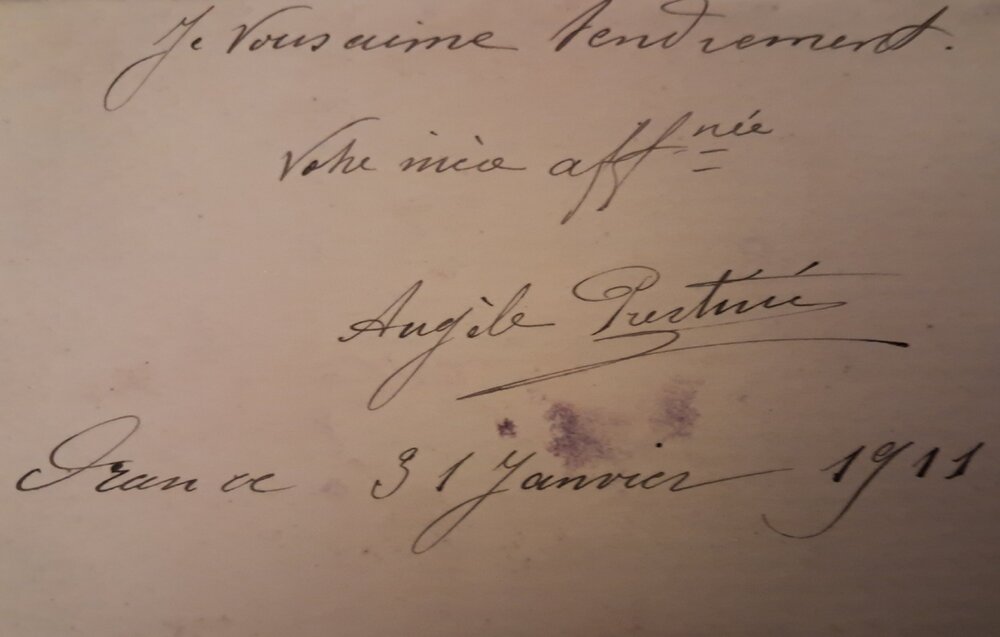 Je Vous aime tendrement.
Votre nièce aff née
Angèle
France 31 Janvier 1911